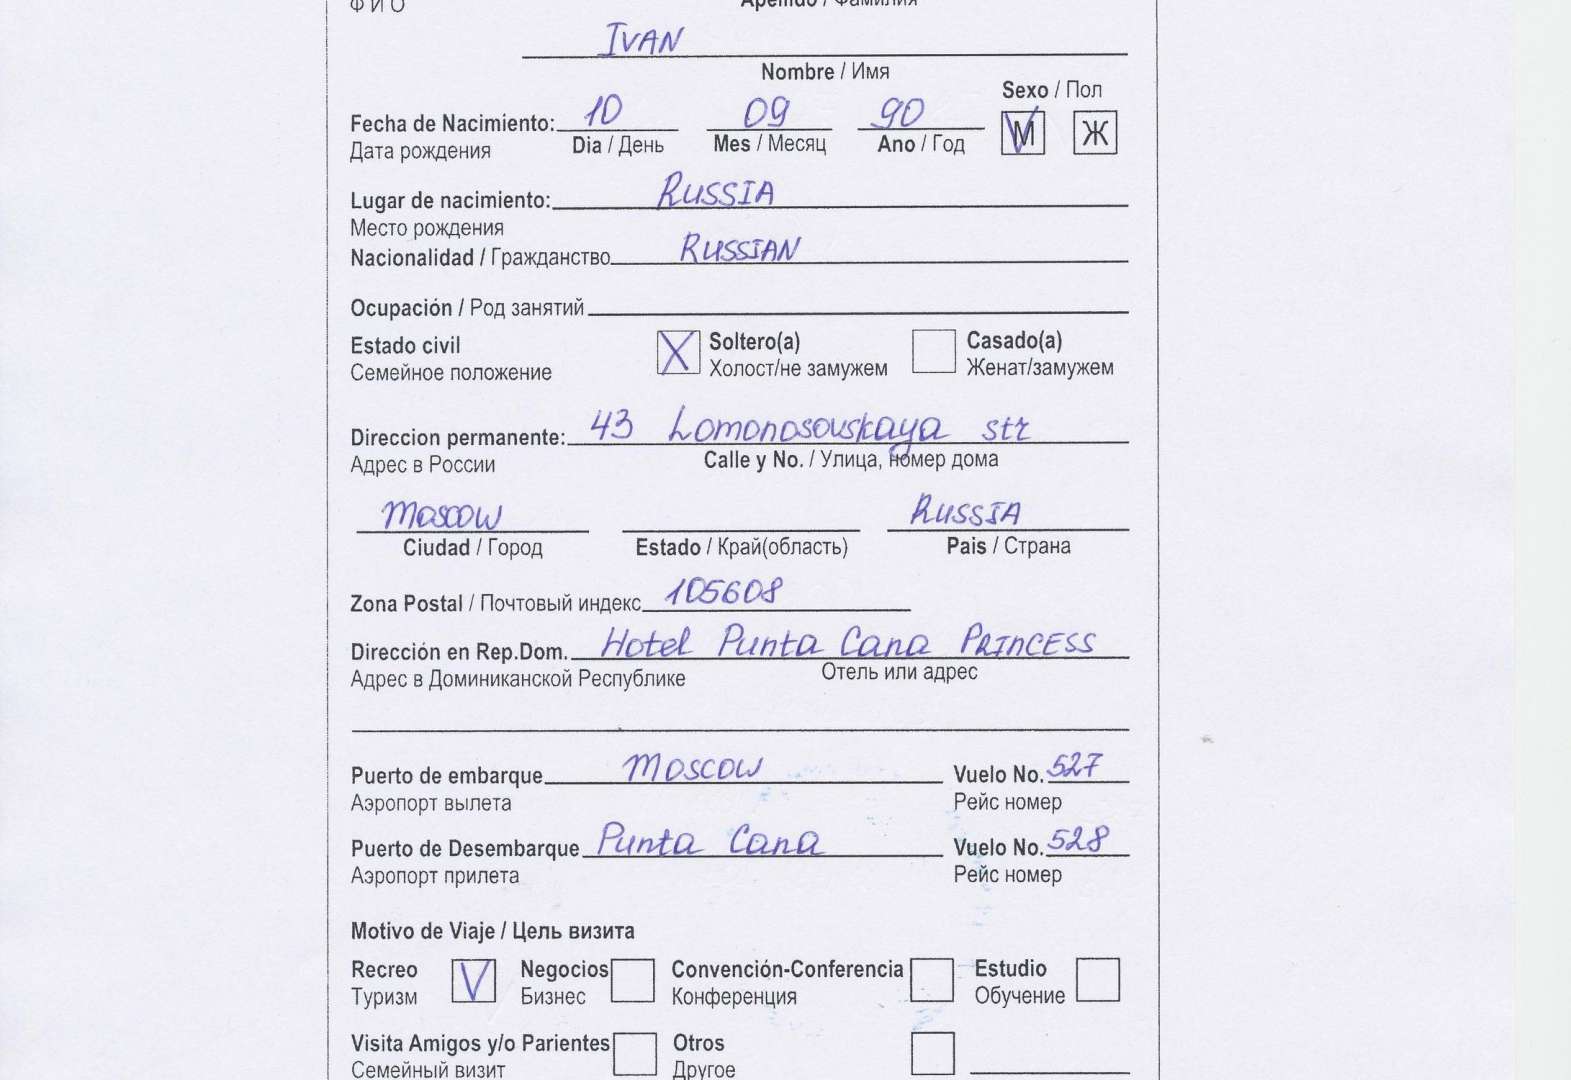 ФИО Apellido / Фамилия
IVAN
Nombre / Имя
Sexo / Пол
Fecha de Nacimiento: 10 09 90 М Ж
Дата рождения Dia / День Mes / Месяц Ano / Год
Lugar de nacimiento: RUSSIA
Место рождения
Nacionalidad / Гражданство RUSSIAN
Ocupación / Род занятий
Estado civil X Soltero(a) Casado(a)
Семейное положение Холост/не замужем Женат/замужем
Direccion permanente: 43 Lomonosovskaya str
Адрес в России Calle y No. / Улица, номер дома
Moscow RUSSIA
Ciudad / Город Estado / Край(область) Pais / Страна
Zona Postal / Почтовый индекс 105608
Dirección en Rep.Dom. Hotel Punta Cana PRINCESS
Адрес в Доминиканской Республике Отель или адрес
Puerto de embarque Moscow Vuelo No. 527
Аэропорт вылета Рейс номер
Puerto de Desembarque Punta Cana Vuelo No. 528
Аэропорт прилета Рейс номер
Motivo de Viaje / Цель визита
Recreo V Negocios Convención-Conferencia Estudio
Туризм Бизнес Конференция Обучение
Visita Amigos y/o Parientes Otros
Семейный визит Другое